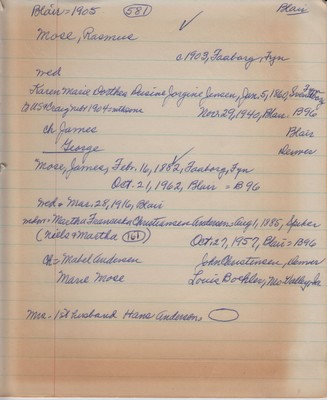 Blair = 1905 581 Blair
Mose, Rasmus
c.1903, Faaborg, Fyn
wed
Karen Marie Dorthea Dusine Jorgine Jensen, Jan. 5, 1860, Svendborg
to US Craig, Neb 1904 with sons Nov. 29, 1940, Blair B96
ch James Blair
George Denver
Mose, James, Febr. 16, 1882, Faaborg, Fyn
Oct. 21, 1962, Blair = B96
wed = Mar. 28, 1916, Blair
Martha Christiansen Anderson Aug 1, 1885, Spiker
(Niels & Martha 161) Oct. 27, 1957, Blair = B96
ch = Mabel Andersen John Christensen, Denver
Marie Mose Louis Boehler, Mo. Valley, Ia
Mrs. 1st husband Hans Anderson